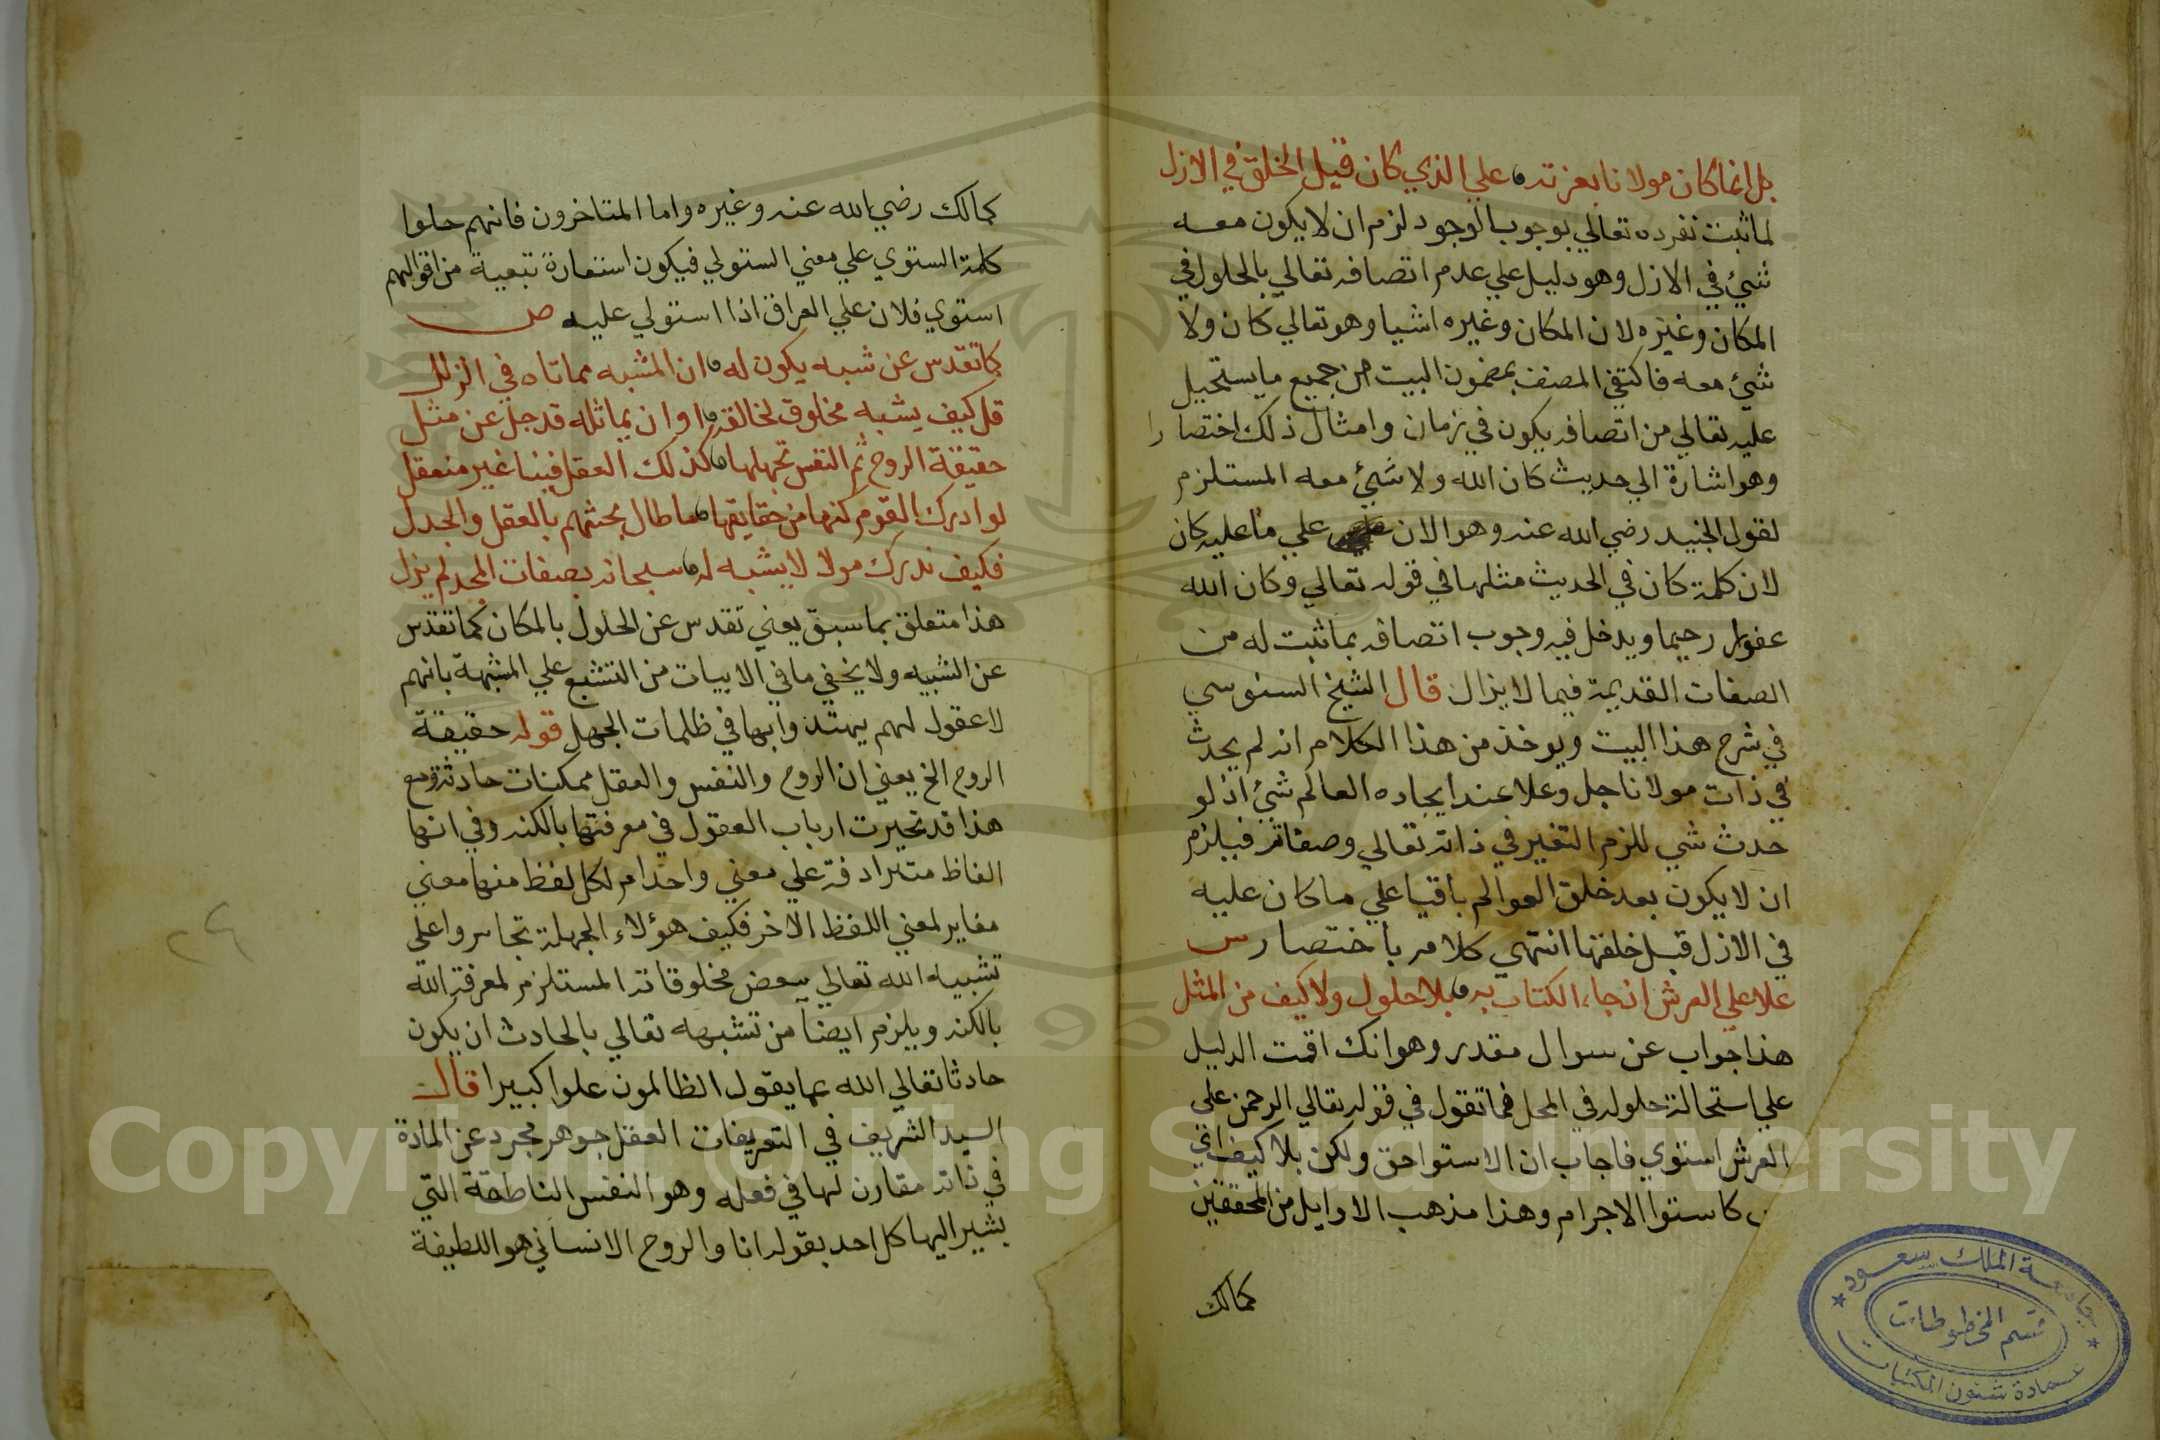 بل انما كان مولانا بعزته علي الذي كان قبل الخلق في الازل
لما ثبت تفرده تعالي بوجوب الوجود لزم ان لا يكون معه
شيئ في الازل وهو دليل علي عدم اتصافه تعالي بالحلول في
المكان وغيره لان المكان وغيره اشيا وهو تعالي كان ولا
شيئ معه فاكتفي المصنف بمضمون البيت من جميع ما يستحيل
عليه تعالي من اتصافه يكون في زمان وامثال ذلك اختصارا
وهو اشارة الي حديث كان الله ولا شيئ معه المستلزم
لقول الجنيد رضي الله عنه وهو الان علي ما عليه كان
لان كلمة كان في الحديث مثلها في قوله تعالي وكان الله
غفورا رحيما ويدخل فيه وجوب اتصافه بما ثبت له من
الصفات القديمة فيما لا يزال قال الشيخ السنوسي
في شرح هذا البيت ويوخذ من هذا الكلام انه لم يحدث
في ذات مولانا جل وعلا عند ايجاده العالم شيئ اذ لو
حدث شي للزم التغير في ذاته تعالي وصفاته فيلزم
ان لا يكون بعد خلق العوالم باقيا علي ما كان عليه
في الازل قبل خلقها انتهي كلامه باختصار س
علا علي العرش ان جاء الكتاب به بلا حلول ولا كيف من المثل
هذا جواب عن سوال مقدر وهو انك اقمت الدليل
علي استحالة حلوله في المحل فما تقول في قوله تعالي الرحمن علي
العرش استوي فاجاب ان الاستوا حق ولكن بلا كيف اي
كاستوا الاجرام وهذا مذهب الاوايل من المحققين
كمالك
كمالك رضي الله عنه وغيره واما المتاخرون فانهم حلوا
كلمة استوي علي معني استولي فيكون استعارة تبعية من اقوالهم
استوي فلان علي العراق اذا استولي عليه ص
كما تقدس عن شبه يكون له ان المشبه مما تاه في الزلل
قل كيف يشبه مخلوق لخالقه او ان يماثله قد جل عن مثل
حقيقة الروح ثم النفس تجهلها كذلك العقل فينا غير منعقل
لو ادرك القوم كنها من حقايقها ما طال بحثهم بالعقل والجدل
فكيف ندرك مولا لا يشبه له سبحانه بصفات المجد لم يزل
هذا متعلق بما سبق يعني تقدس عن الحلول بالمكان كما تقدس
عن الشبيه ولا يخفي ما في الابيات من التشنيع علي المشبهة بانهم
لا عقول لهم يهتدوا بها في ظلمات الجهل قوله حقيقة
الروح الخ يعني ان الروح والنفس والعقل ممكنات حادثة ومع
هذا قد تحيرت ارباب العقول في معرفتها بالكنه وفي انها
الفاظ مترادفة علي معني واحد ام لكل لفظ منها معني
مغاير لمعني اللفظ الاخر فكيف هؤلاء الجهلة تجاسروا علي
تشبيه الله تعالي ببعض مخلوقاته المستلزم لمعرفة الله
بالكنه ويلزم ايضا من تشبيهه تعالي بالحادث ان يكون
حادثا تعالي الله عما يقول الظالمون علوا كبيرا قال
السيد الشريف في التعريفات العقل جوهر مجرد عن المادة
في ذاته مقارن لها في فعله وهو النفس الناطقة التي
يشير اليها كل احد بقوله انا والروح الانساني هو اللطيفة
Copyright © King Saud University
1957
جامعة الملك سعود
قسم المخطوطات
عمادة شئون المكتبات